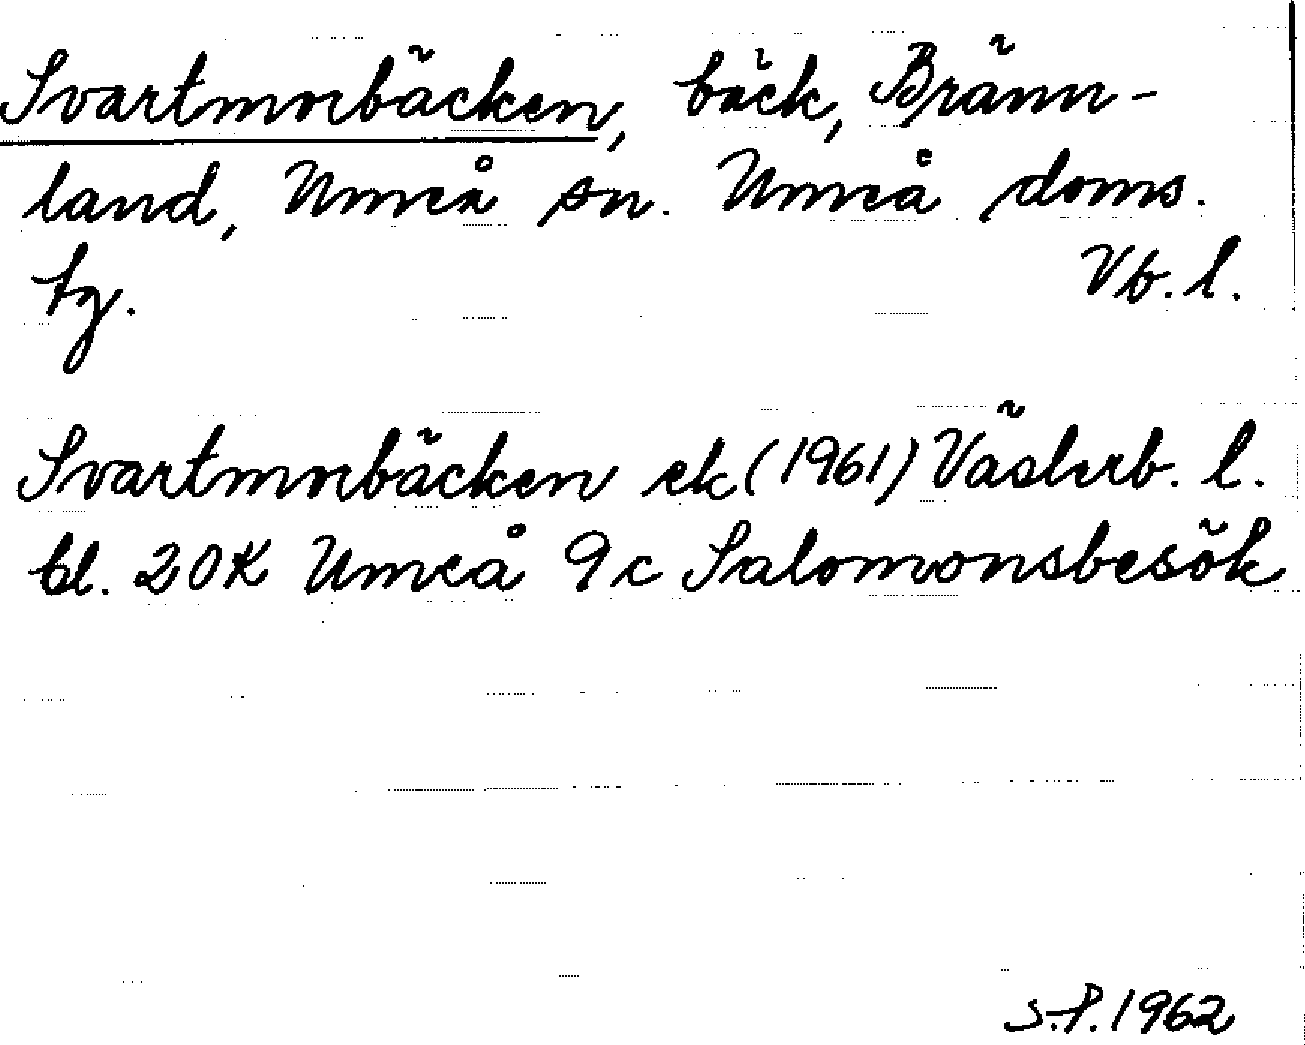 Svartmorbäcken, bäck, Bränn-
land, Umeå sn. Umeå doms.
tg. Vb. l.
Svartmorbäcken ek (1961) Västerb. l.
bl. 20K Umeå 9c Salomonsbesök
S.P. 1962